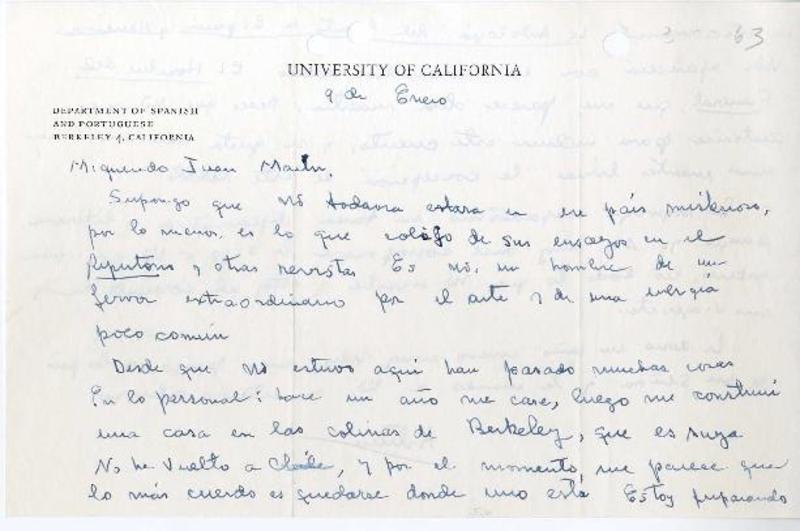 63
UNIVERSITY OF CALIFORNIA
9 de Enero
DEPARTMENT OF SPANISH
AND PORTUGUESE
BERKELEY 4, CALIFORNIA
Mi querido Juan
Supongo que Ud todavía estará en ese país misterioso,
por lo menos, es lo que colijo de sus ensayos en el
Repertorio y otras revistas Es Ud. un hombre de un
fervor extraordinario por el arte y de una energía
poco común
Desde que Ud estuvo aquí han pasado muchas cosas
En lo personal: hace un año me case, luego me construí
una casa en las colinas de Berkeley, que es suya
No he vuelto a Chile, y por el momento, me parece que
lo más cuerdo es quedarse donde uno está Estoy preparando